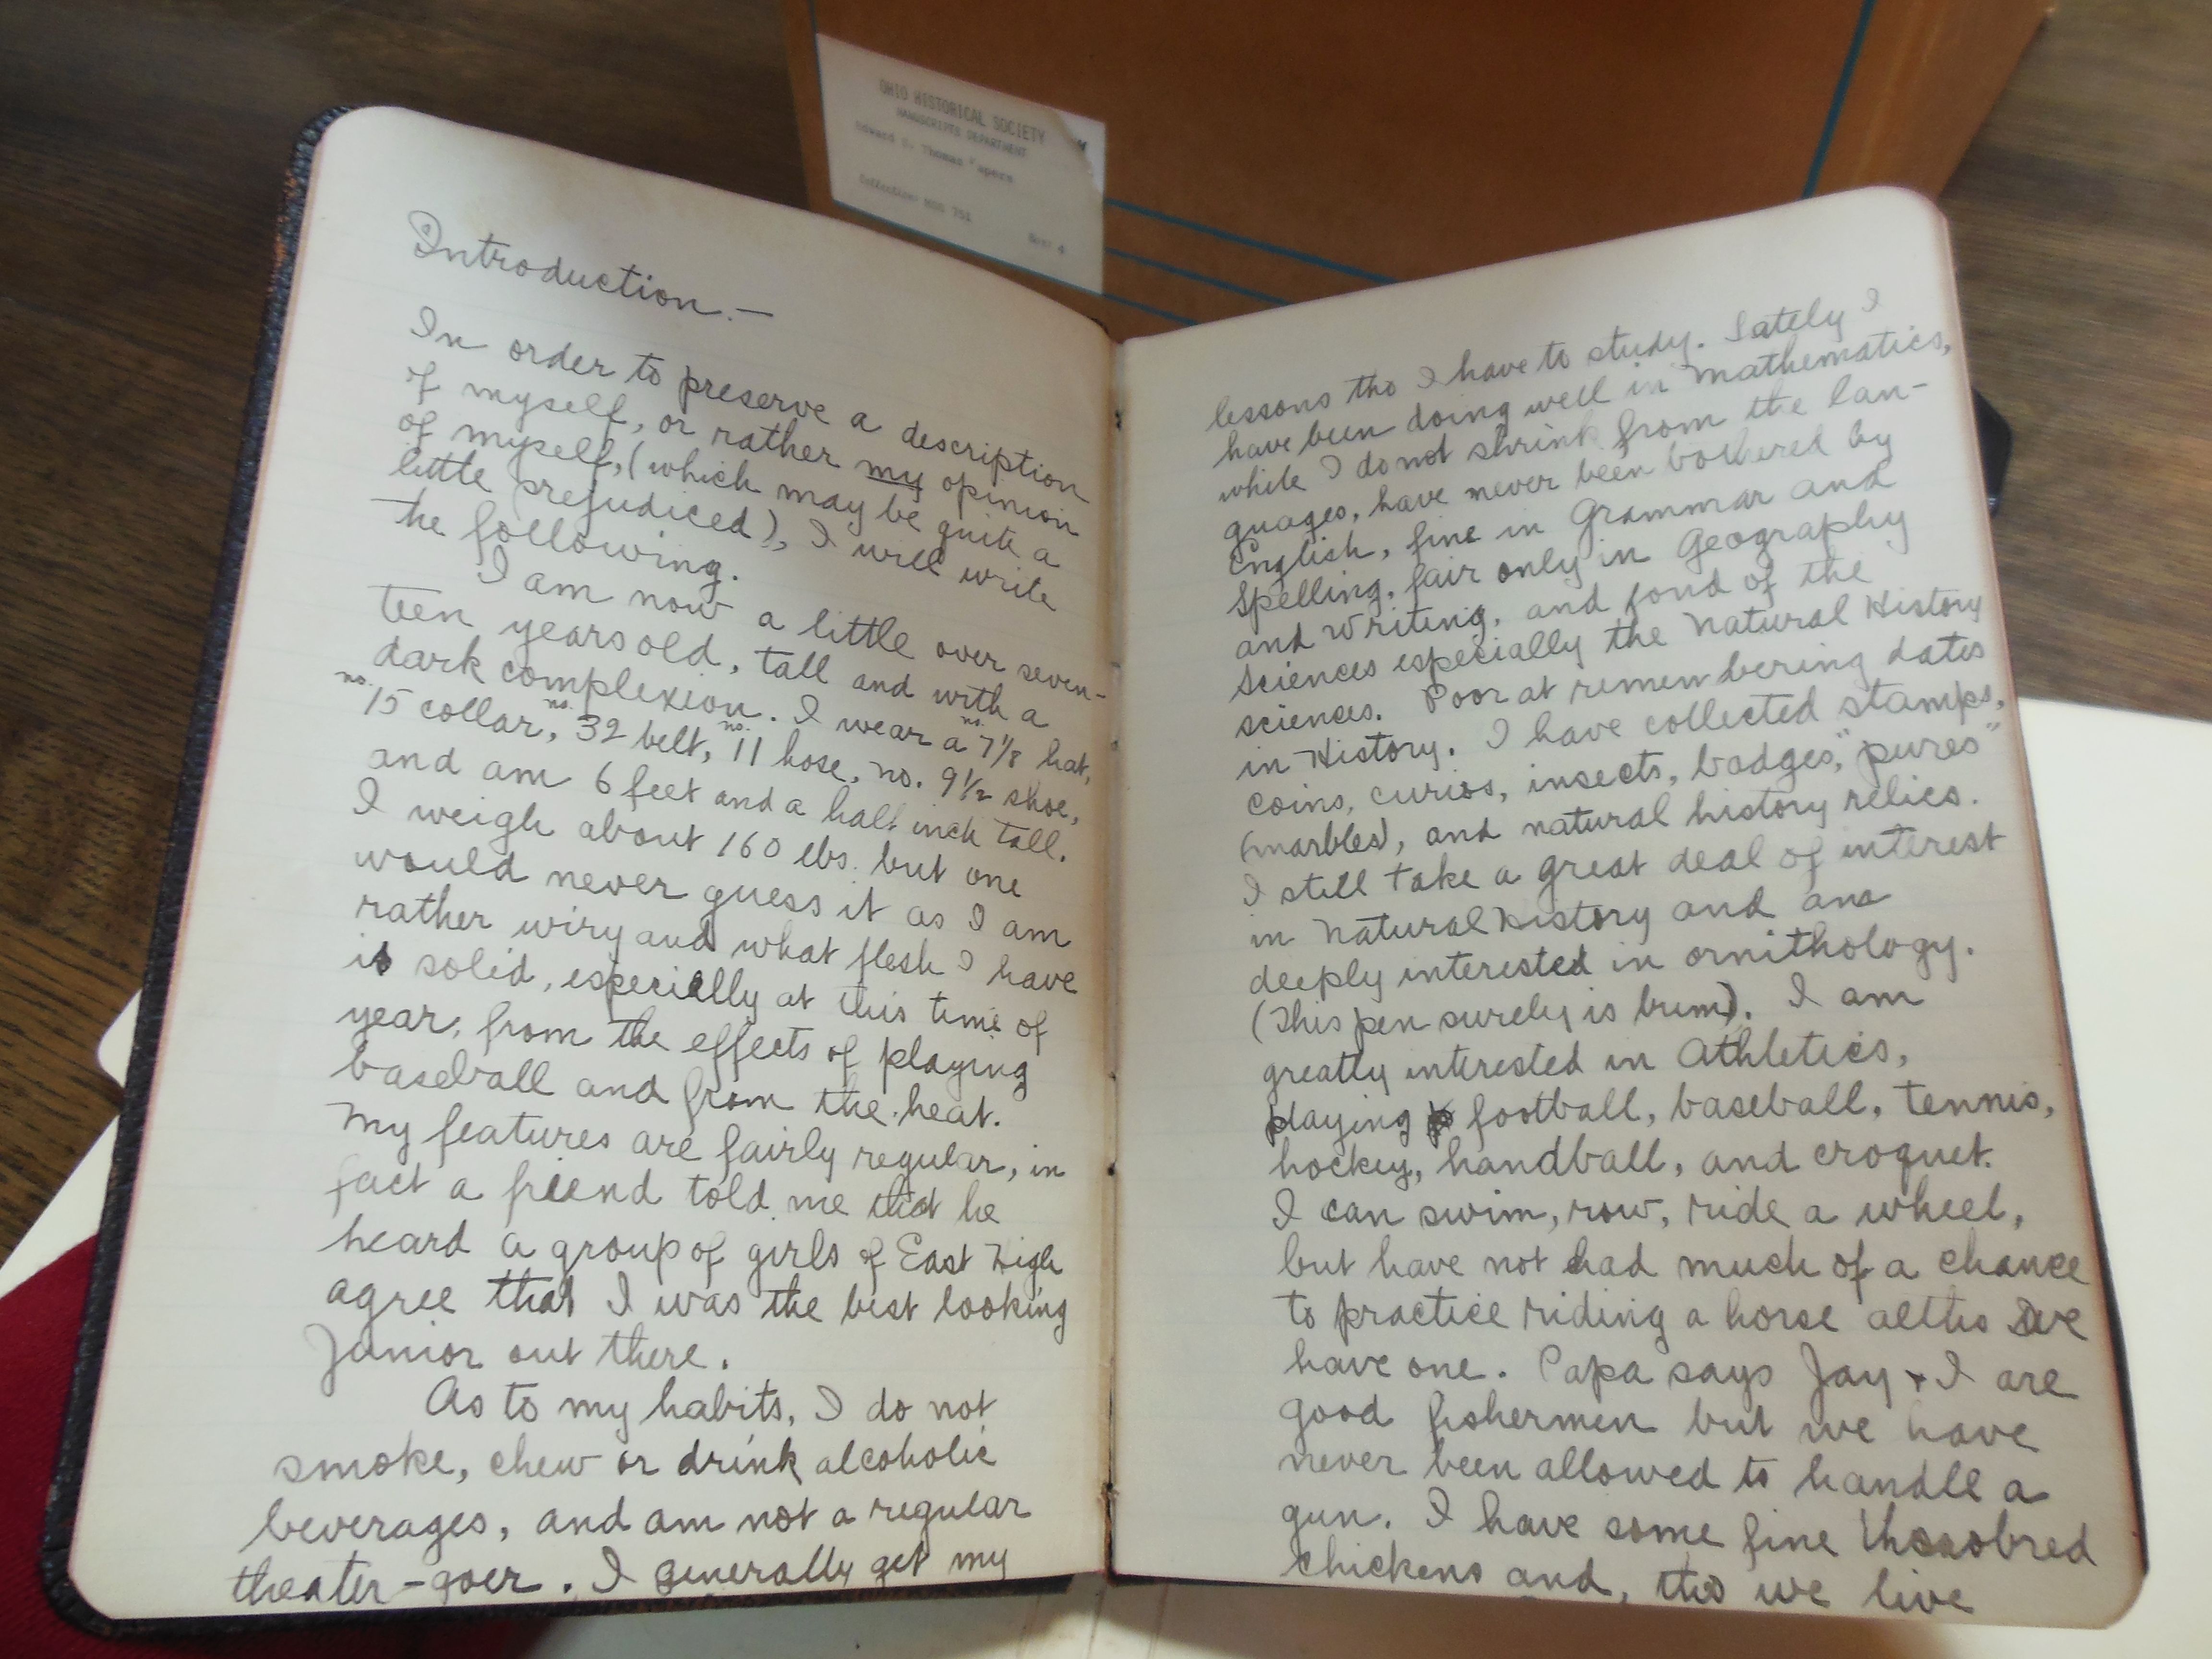 OHIO HISTORICAL SOCIETY
MANUSCRIPTS DEPARTMENT
Edward S. Thomas Papers
Collection: MSS 752
Box: 4
Introduction.—
In order to preserve a description
of myself, or rather my opinion
of myself, (which may be quite a
little prejudiced), I will write
the following.
I am now a little over seven-
teen years old, tall and with a
dark complexion. I wear a no. 7 1/8 hat,
no. 15 collar, no. 32 belt, no. 11 hose, no. 9 1/2 shoe,
and am 6 feet and a half inch tall.
I weigh about 160 lbs. but one
would never guess it as I am
rather wiry and what flesh I have
is solid, especially at this time of
year, from the effects of playing
baseball and from the heat.
My features are fairly regular, in
fact a friend told me that he
heard a group of girls of East High
agree that I was the best looking
Junior out there.
As to my habits, I do not
smoke, chew or drink alcoholic
beverages, and am not a regular
theater-goer. I generally get my
lessons tho I have to study. Lately I
have been doing well in mathematics,
while I do not shrink from the lan-
guages, have never been bothered by
English, fine in Grammar and
Spelling, fair only in Geography
and Writing, and fond of the
Sciences especially the Natural History
sciences. Poor at remembering dates
in History. I have collected stamps,
coins, curios, insects, badges, "pures"
(marbles), and natural history relics.
I still take a great deal of interest
in Natural History and am
deeply interested in ornithology.
(This pen surely is bum). I am
greatly interested in Athletics,
playing football, baseball, tennis,
hockey, handball, and croquet.
I can swim, row, ride a wheel,
but have not had much of a chance
to practice riding a horse altho we
have one. Papa says Jay + I are
good fishermen but we have
never been allowed to handle a
gun. I have some fine
chickens and, tho we live